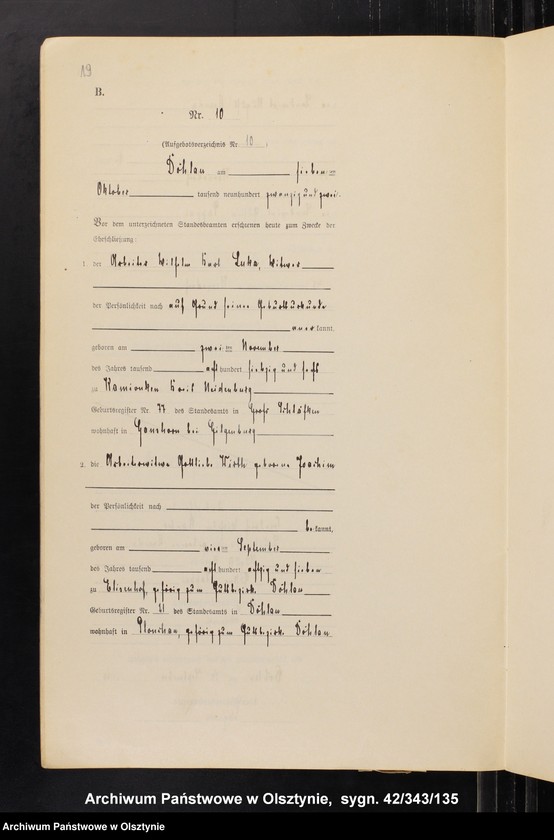 19
B.
Nr. 10
(Aufgebotsverzeichnis Nr. 10
Döhlau am sieben ten
Oktober tausend neunhundert zwanzig und zwei.
Vor dem unterzeichneten Standesbeamten erschienen heute zum Zwecke der
Eheschließung:
1. der Arbeiter Wilhelm Karl Luka, Witwer
der Persönlichkeit nach auf Grund seiner Geburtsurkunde
aner kannt,
geboren am zwei ten November
des Jahres tausend acht hundert siebzig und sechs
zu Kamionken Kreis Neidenburg
Geburtsregister Nr. 77 des Standesamts in Groß Schläfken
wohnhaft in Ganshorn bei Gilgenburg
2. die Arbeiterwitwe Gottliebe Wirth geborene Joachim
der Persönlichkeit nach
be kannt,
geboren am vier ten September
des Jahres tausend acht hundert achtzig und sieben
zu Elisenhof, gehörig zum Gutsbezirk Döhlau
Geburtsregister Nr. 21 des Standesamts in Döhlau
wohnhaft in gehörig zum Gutsbezirk Döhlau
Archiwum Państwowe w Olsztynie, sygn. 42/343/135
Archiwum Państwowe w Olsztynie